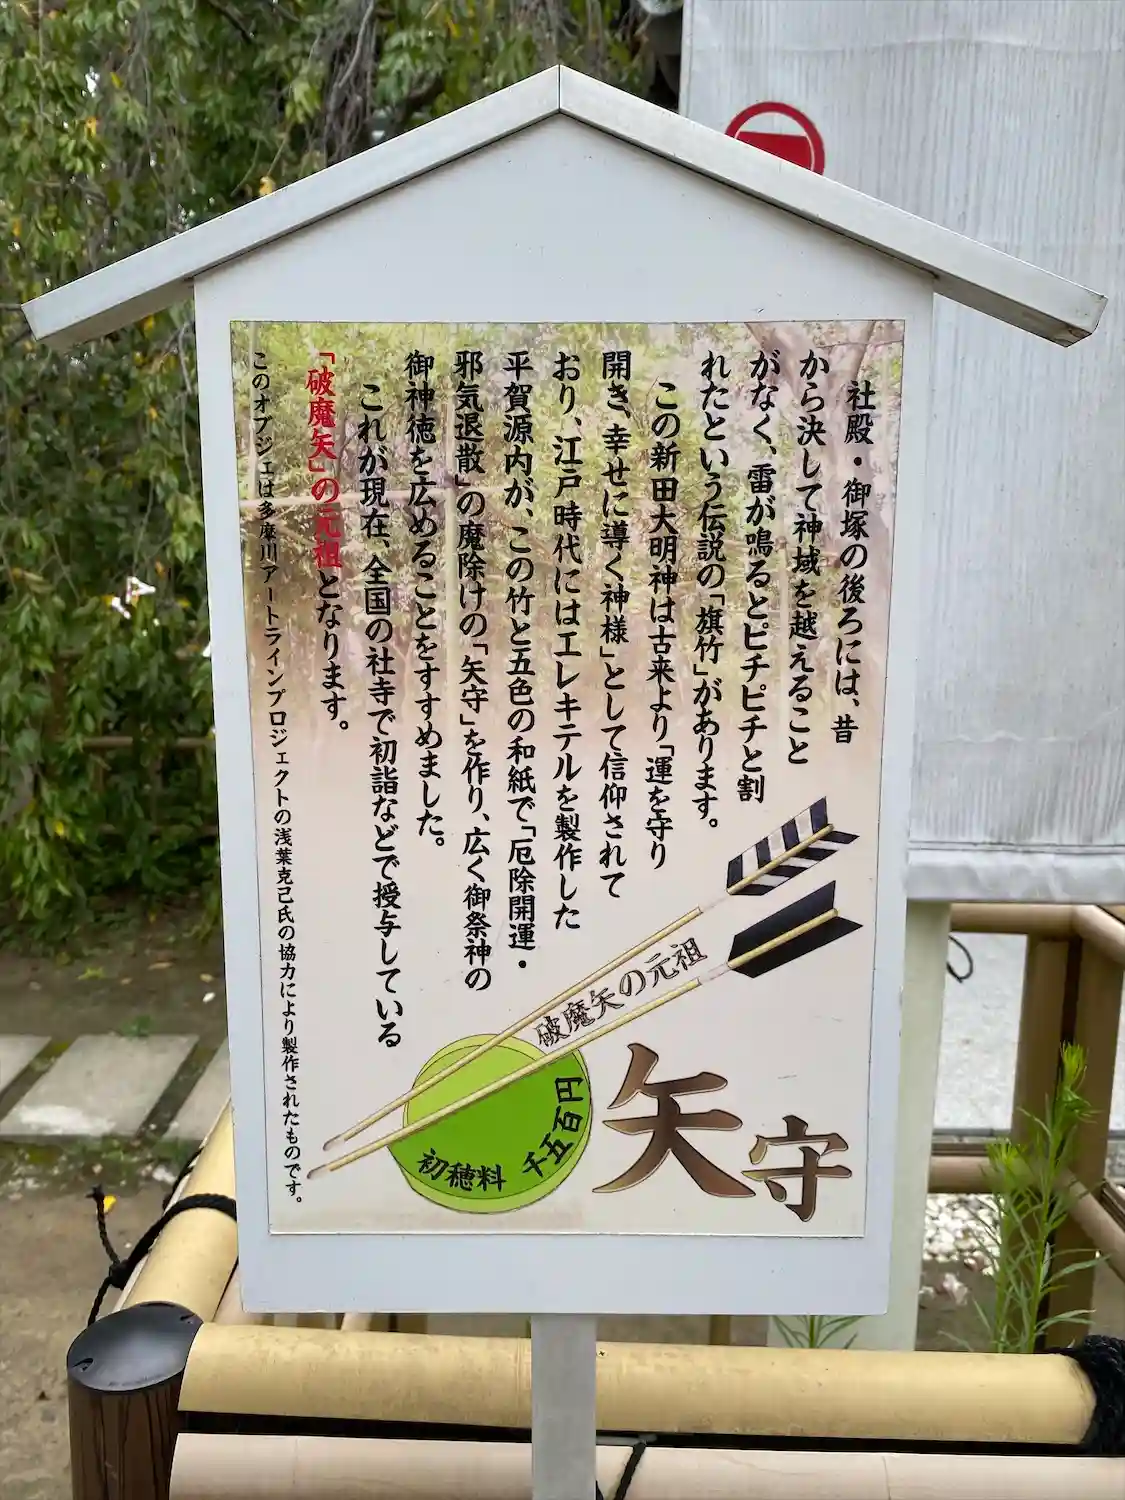 社殿・御塚の後ろには、昔
から決して神域を越えること
がなく、雷が鳴るとピチピチと割
れたという伝説の「旗竹」があります。
この新田大明神は古来より「運を守り
開き、幸せに導く神様」として信仰されて
おり、江戸時代にはエレキテルを製作した
平賀源内が、この竹と五色の和紙で「厄除開運・
邪気退散」の魔除けの「矢守」を作り、広く御祭神の
御神徳を広めることをすすめました。
これが現在、全国の社寺で初詣などで授与している
「破魔矢」の元祖となります。
このオブジェは多摩川アートラインプロジェクトの浅葉克己氏の協力により製作されたものです。
破魔矢の元祖
矢守
初穂料 千五百円